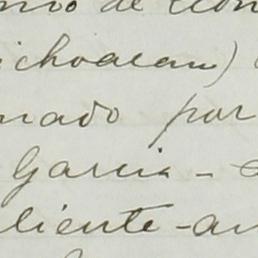 de
ichoacan)
nado por
Garcia -
liente - an